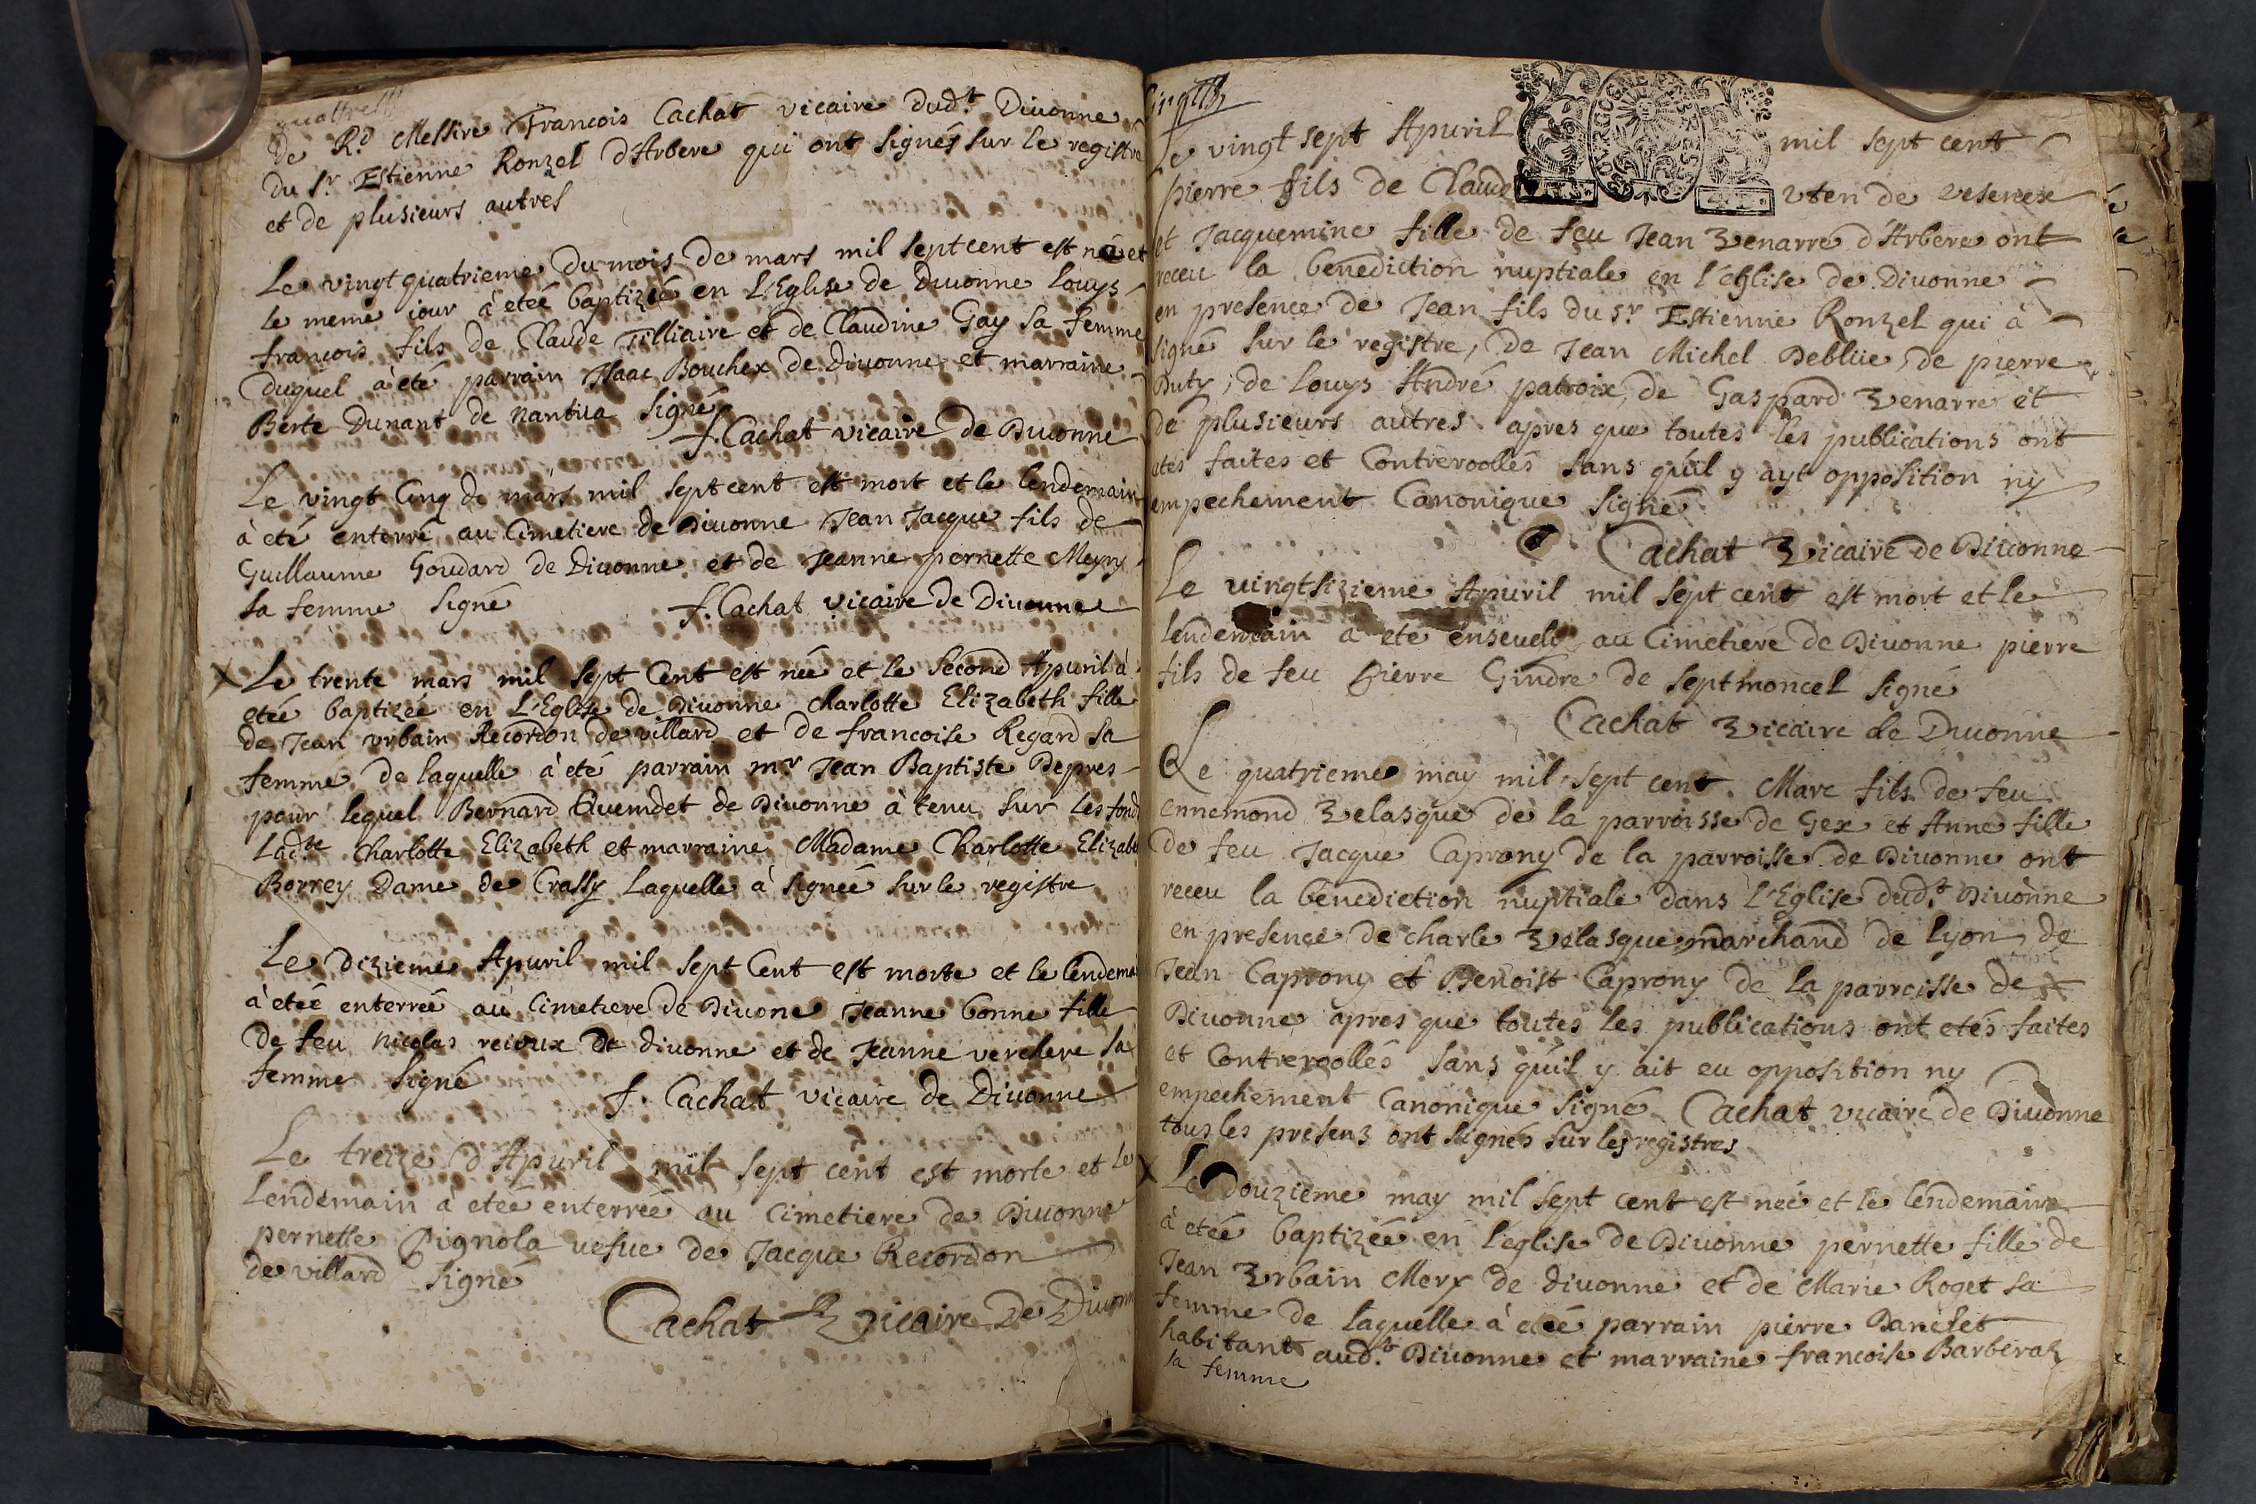 quattre
de Rd Messire Francois Cachat vicaire dudt Diuonne
du Sr Estienne Ronzel d'Arbere qui ont signés sur le registre
et de plusieurs autres
Le vingt quatrieme du mois de mars mil sept cent est né et
le meme iour à eteé baptizé en L'Eglise de Diuonne Louys
francois fils de Claude Tilliaire et de Claudine Gay sa femme
duquel à été parrain Isaac Bouchex de Diuonne et marraine
Berte Dunant de nantua Signé
f. Cachat vicaire de Diuonne
Le vingt Cinq de mars mil sept cent est mort et le lendemain
à eté enterré au Cimetiere de Diuonne Jean Jacque fils de
Guillaume Goudard de Diuonne et de Jeanne pernette Meyry
sa femme Signé f. Cachat vicaire de Diuonne
X Le trente mars mil sept Cent est neé et le second Apuril à
eteé baptizeé en L'Eglise de Diuonne Charlotte Elizabeth fille
de Jean vrbain Recordon de villard et de francoise Regard sa
femme de laquelle à eté parrain mr Jean Baptiste Depres
pour lequel Bernard de Diuonne à tenu sur les fond
Ladte Charlotte Elizabeth et marraine Madame Charlotte Elizab
Borrey Dame de Crassy Laquelle à signeé sur le registre
Le dizieme Apuril mil sept Cent est morte et le lendema
à eteé enterreé au Cimetiere de Diuone Jeanne bonne fille
de feu nicolas de diuonne et de Jeanne verchere sa
femme Signé f. Cachat vicaire de Diuonne
Le treize d'Apuril mil sept cent est morte et le
Lendemain à eteé enterreé au Cimetiere de Diuonne
pernette Pignola vefue de Jacque Recordon
de villard Signé
Cachat Vicaire De Diuonn
Cinq
Le vingt sept Apuril mil sept cent
BOVRGOGNE
pierre fils de Claude vten de vesenex
et Jacquemine fille de feu Jean Venarre d'Arbere ont
receu la benediction nuptiale en l'église de Diuonne
en presence de Jean fils du sr Estienne Ronzel qui à
signé sur le registre, de Jean Michel Deblüe, de pierre
Duty, de Louys André patroix, de Gaspard Venarre et
de plusieurs autres apres que toutes les publications ont
etés faites et Contreroollés sans qu'il y ayt opposition ny
empechement Canonique Signé
Cachat Vicaire de Diuonne
Le vingtsizieme Apuril mil sept cent est mort et le
lendemain a eté enseueli au Cimetiere de Diuonne pierre
fils de feu Pierre Gindre de septmoncel Signé
Cachat Vicaire de Diuonne
Le quatrieme may mil sept cent Marc fils de feu
ennemond Velasque de la parroisse de Gex et Anne fille
de feu Jacque Caprony de la parroisse de Diuonne ont
receu la benediction nuptiale dans L'Eglise dudt Diuonne
en presence de charle Velasque marchand de Lyon, de
Jean Caprony et Benoist Caprony de la parroisse de
Diuonne apres que toutes les publications ont etés faites
et Contreroollés sans qu'il y ait eu opposition ny
empechement Canonique Signé Cachat vicaire de Diuonne
tous les presens ont signés sur les registres
X Le Douzieme may mil sept cent est neé et le lendemain
à eteé baptizeé en l'eglise de Diuonne pernette fille de
Jean Vrbain Mery de diuonne et de Marie Roget sa
femme de laquelle à eteé parrain pierre Danclet
habitant audt Diuonne et marraine francoise Barberat
sa femme